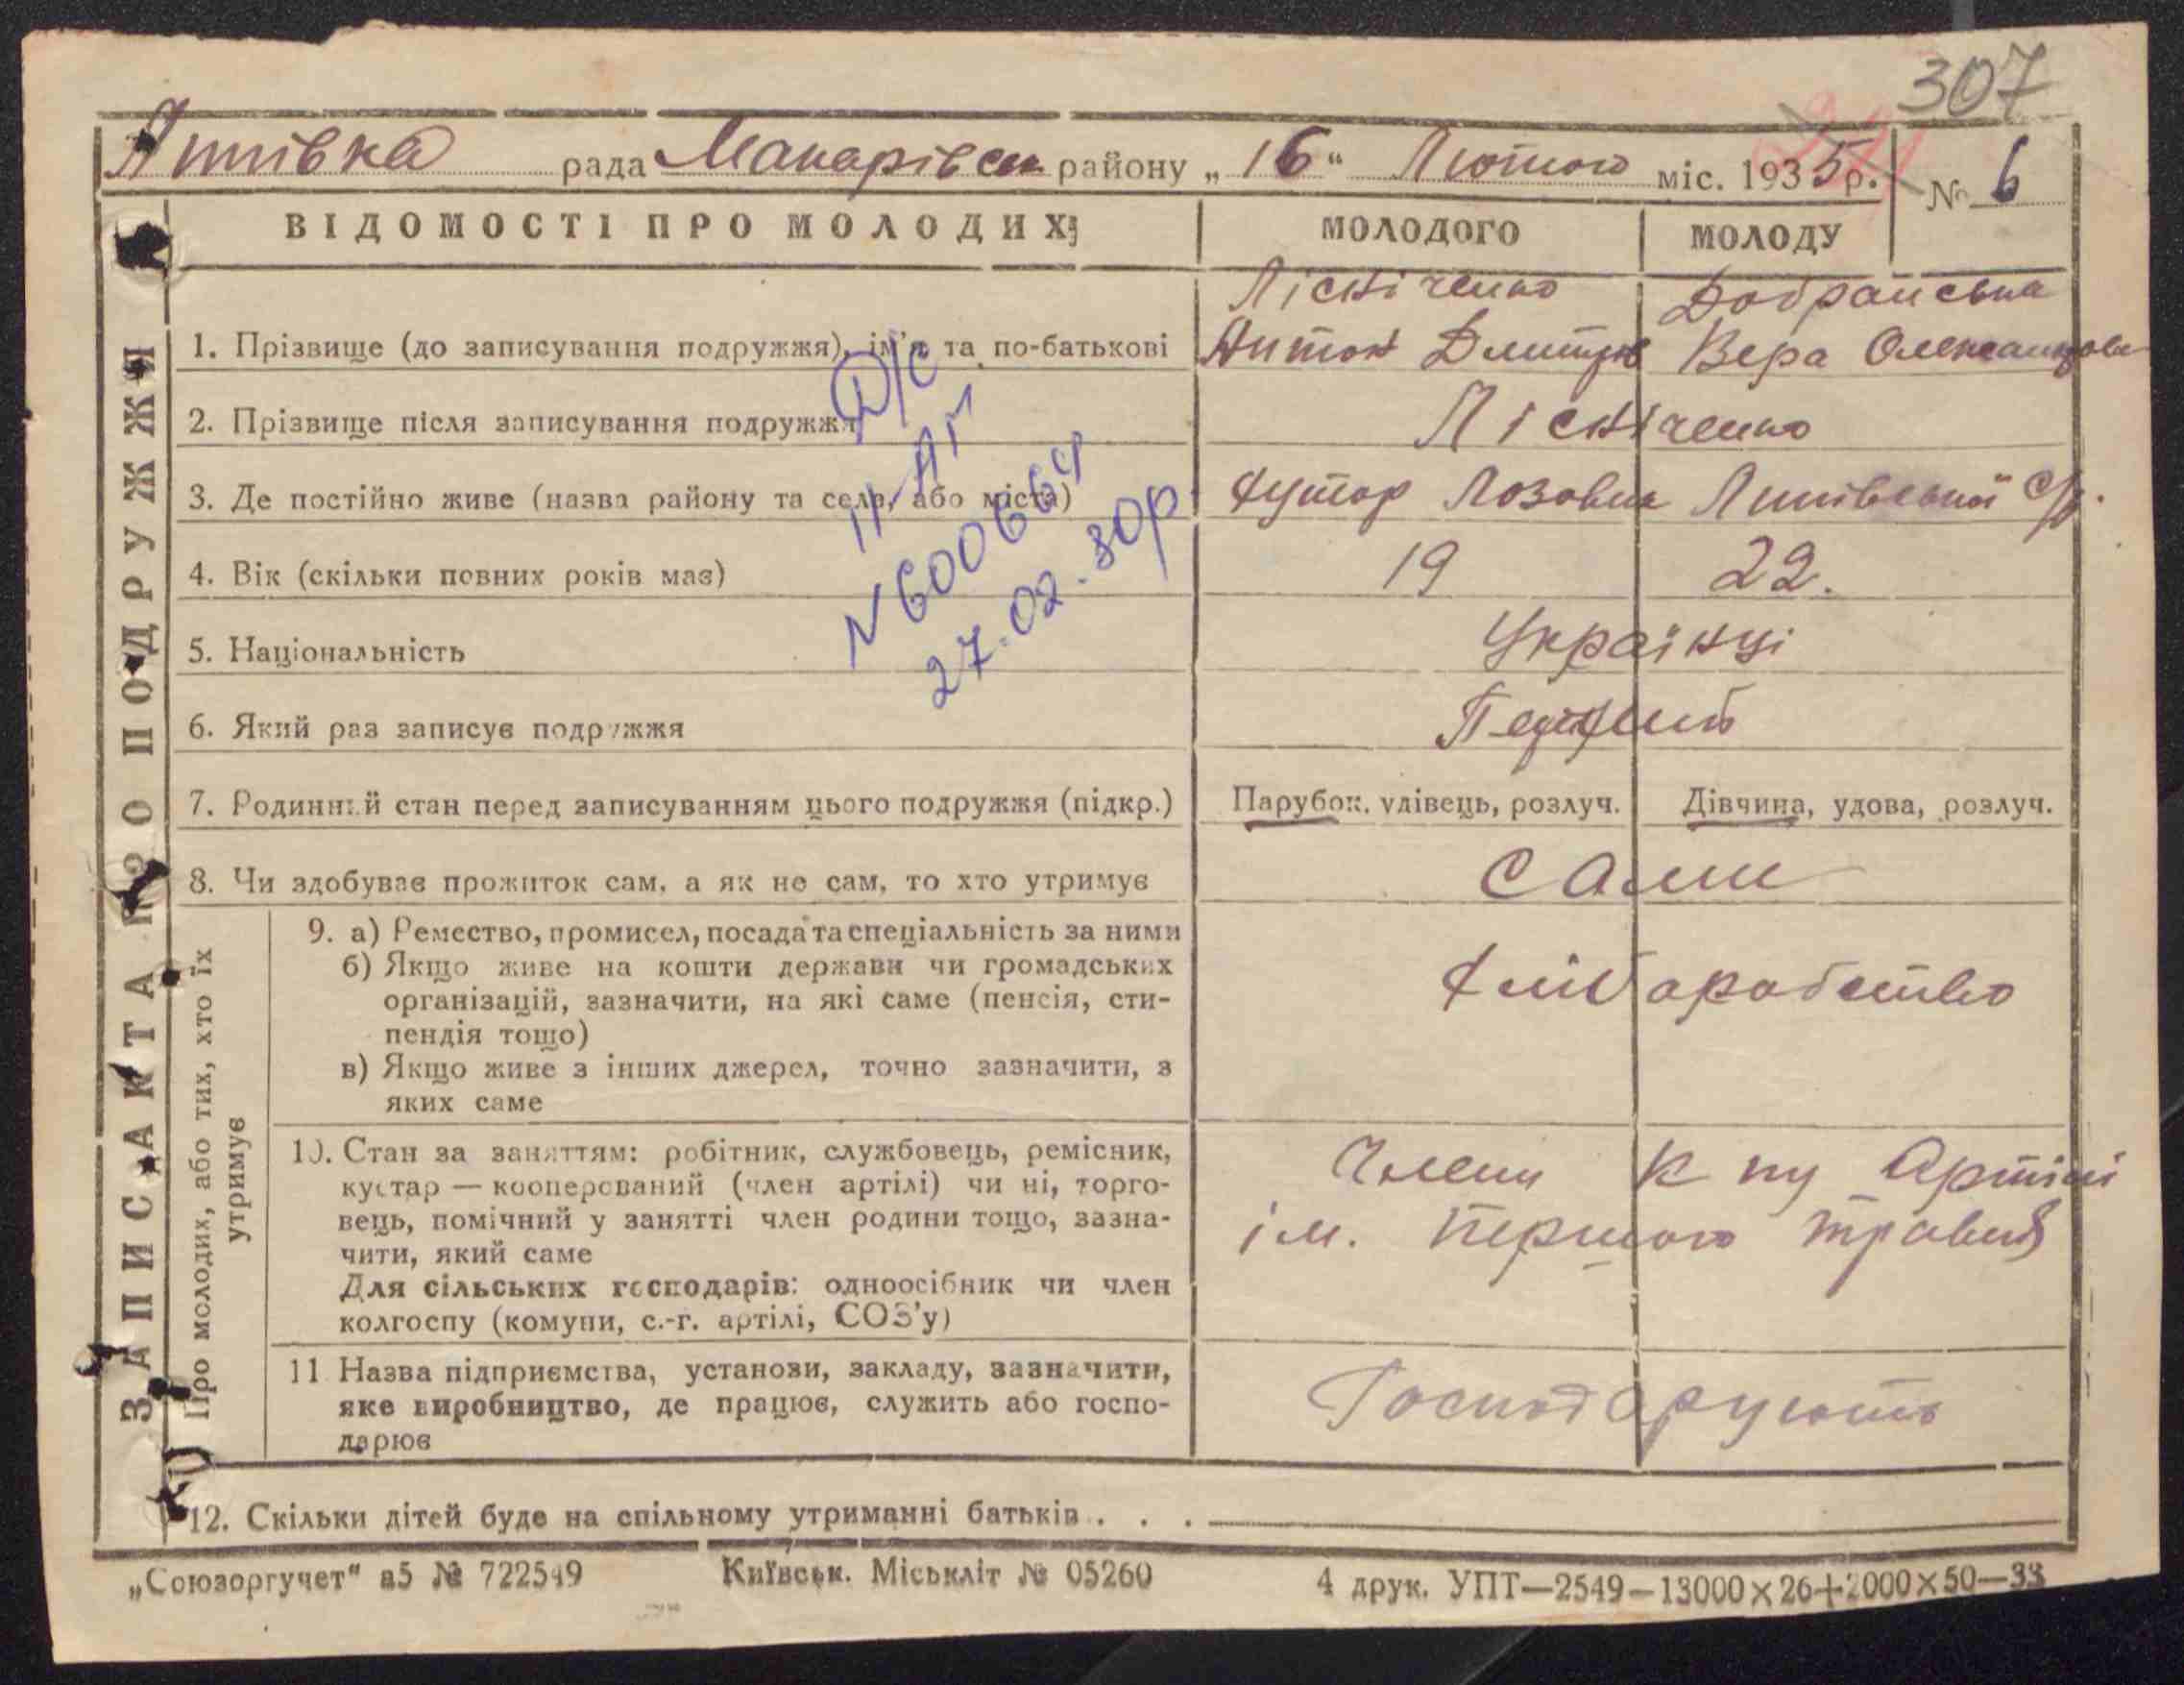 307
Липівка рада Макарівськ району „16“ Лютого міс. 1935 р. № 6
ЗАПИС АКТА ПРО ПОДРУЖЖЯ
ВІДОМОСТІ ПРО МОЛОДИХ:
МОЛОДОГО
МОЛОДУ
1. Прізвище (до записування подружжя), ім'я та по-батькові
Лісніченко
Антон Дмитров
Добранська
Вера Олександрова
2. Прізвище після записування подружжя
Лісніченко
3. Де постійно живе (назва району та села, або міста)
Хутор Лозовик Липівської с/р.
4. Вік (скільки повних років має)
19
22.
5. Національність
Українці
6. Який раз записує подружжя
Д/С
II-АГ
N600664
27.02.80р
7. Родинний стан перед записуванням цього подружжя (підкр.)
Парубок, удівець, розлуч.
Дівчина, удова, розлуч.
8. Чи здобуває прожиток сам, а як не сам, то хто утримує
Сами
Про молодих, або тих, хто їх утримує
9. а) Ремество, промисел, посада та спеціальність за ними
б) Якщо живе на кошти держави чи громадських
організацій, зазначити, на які саме (пенсія, сти-
пендія тощо)
в) Якщо живе з інших джерел, точно зазначити, з
яких саме
Хліборобство
10. Стан за заняттям: робітник, службовець, ремісник,
кустар — кооперований (член артілі) чи ні, торго-
вець, помічний у занятті член родини тощо, зазна-
чити, який саме
Для сільських господарів: одноосібник чи член
колгоспу (комуни, с.-г. артілі, СОЗ'у)
Члени к пу Артілі
ім. Першого травня
11 Назва підприємства, установи, закладу, зазначити,
яке виробництво, де працює, служить або госпо-
дарює
Господарують
12. Скільки дітей буде на спільному утриманні батьків . . .
„Союзоргучет“ а5 № 722549 Київськ. Міськліт № 05260 4 друк. УПТ—2549—13000×26+2000×50—33